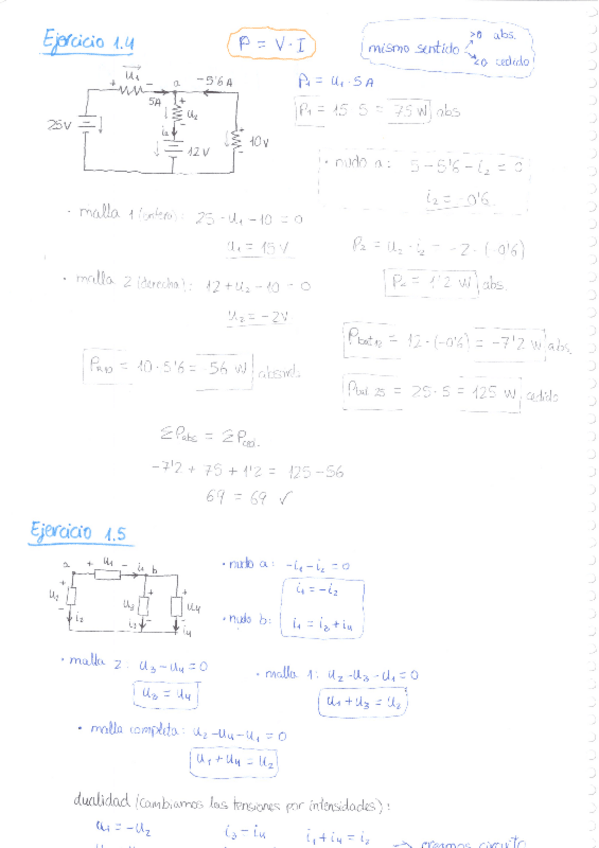 Ejercicio 1.4
P = V · I
mismo sentido
>0 abs.
<0 cedido
+ u₁ -
a
-5'6 A
5A
+
u₂
-
i₂
25V
12V
10V
P₁ = u₁ · 5A
P₁ = 15 · 5 = 75 W abs
· nudo a: 5 - 5'6 - i₂ = 0
i₂ = -0'6
· malla 1 (entera): 25 - u₁ - 10 = 0
u₁ = 15 V
P₂ = u₂ · i₂ = -2 · (-0'6)
P₂ = 1'2 W abs.
· malla 2 (derecha): 12 + u₂ - 10 = 0
u₂ = -2V
= 12 · (-0'6) = -7'2 W abs.
= 10 · 5'6 = 56 W
= 25 · 5 = 125 W cedido
ΣPabs = ΣPced.
-7'2 + 75 + 1'2 = 125 - 56
69 = 69 ✓
Ejercicio 1.5
a
+ u₁ -
i₁
b
+
u₂
-
i₂
+
u₃
-
i₃
+
u₄
-
i₄
· nudo a: -i₁ - i₂ = 0
i₁ = -i₂
· nudo b: i₁ = i₃ + i₄
· malla 2: u₃ - u₄ = 0
u₃ = u₄
· malla 1: u₂ - u₃ - u₁ = 0
u₁ + u₃ = u₂
· malla completa: u₂ - u₄ - u₁ = 0
u₁ + u₄ = u₂
dualidad (cambiamos las tensiones por intensidades):
u₁ = -u₂
i₃ = i₄
i₁ + i₄ = i₂
→ creamos circuito